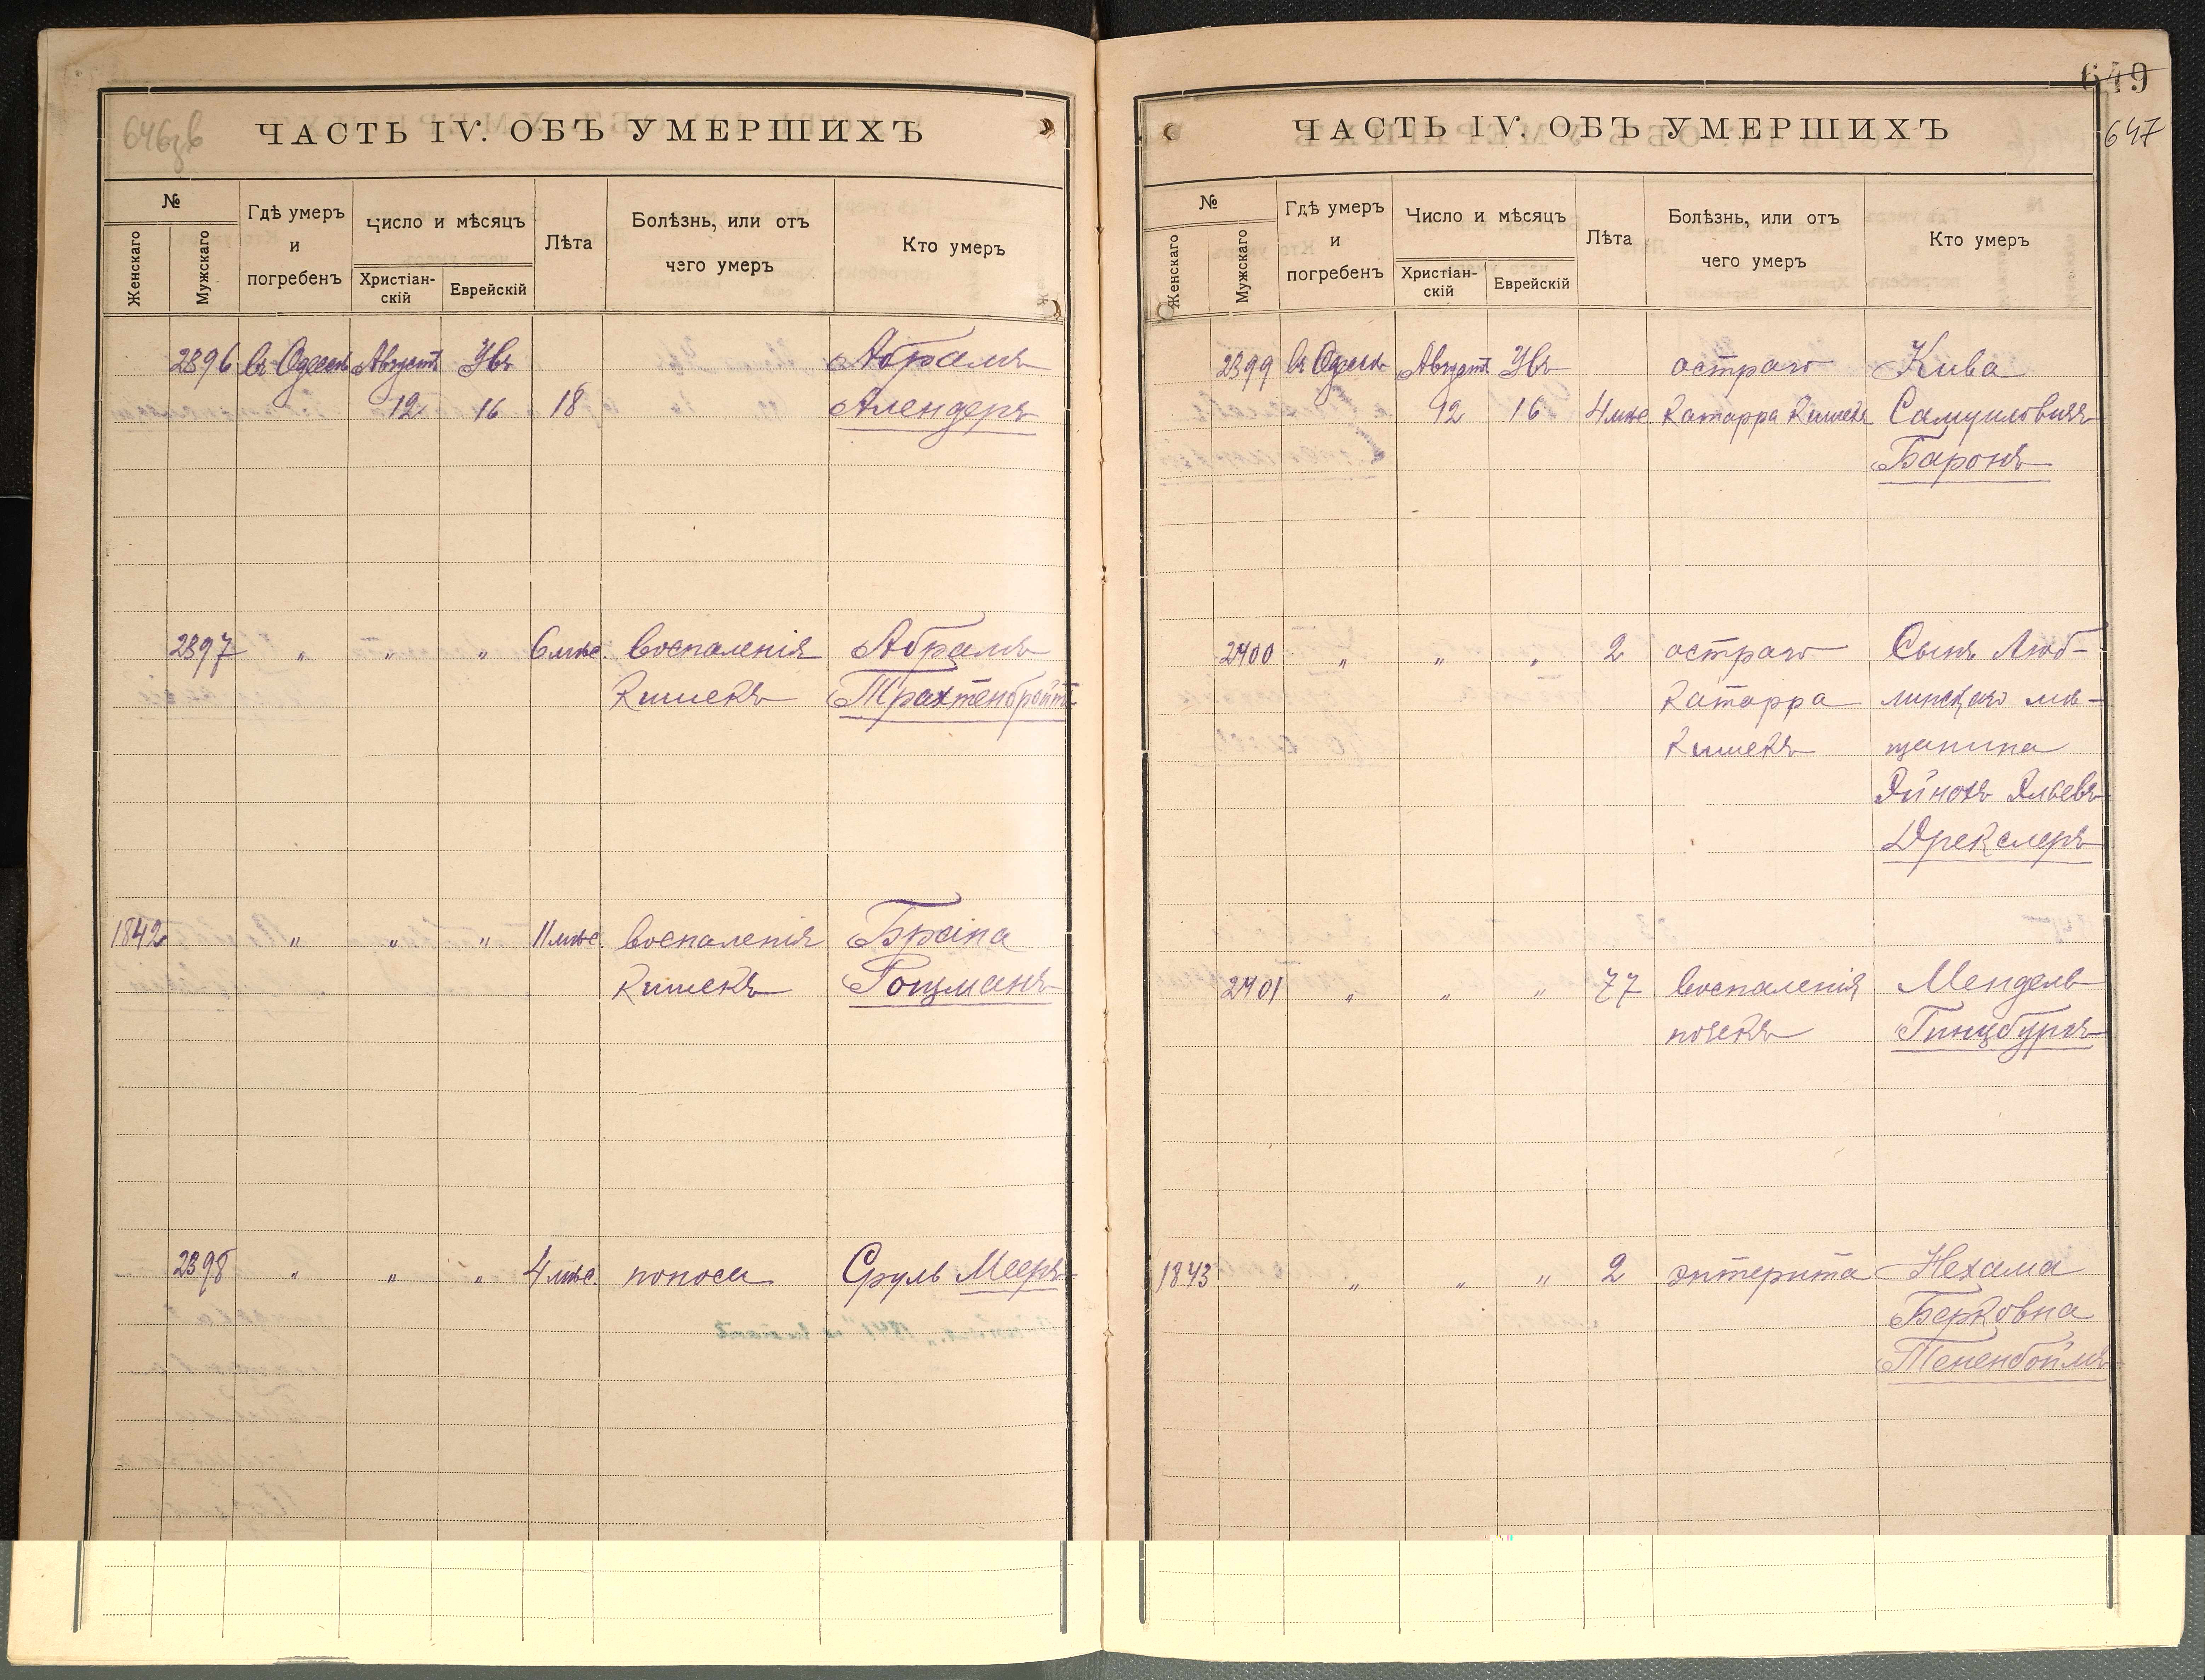 646зв
ЧАСТЬ IV. ОБЪ УМЕРШИХЪ
№
Женскаго
Мужскаго
Гдѣ умеръ
и
погребенъ
Число и мѣсяцъ
Христіан-
скій
Еврейскій
Лѣта
Болѣзнь, или отъ
чего умеръ
Кто умеръ
2396 въ Одессѣ Августъ Увъ Абрамъ
12 16 18 Алендеръ
2397 " " " 6 мѣс. воспаленія Абрамъ
кишекъ Трахтенбройтъ
1842 " " " 11 мѣс. воспаленія Браіна
кишекъ Гоцманъ
2398 " " " 4 мѣс. поноса Сруль Мееръ
649
647
ЧАСТЬ IV. ОБЪ УМЕРШИХЪ
№
Женскаго
Мужскаго
Гдѣ умеръ
и
погребенъ
Число и мѣсяцъ
Христіан-
скій
Еврейскій
Лѣта
Болѣзнь, или отъ
чего умеръ
Кто умеръ
2399 въ Одессѣ Августъ Увъ остраго Кива
12 16 4 мѣс. катарра кишекъ Самуиловичъ
Баронъ
2400 " " " 2 остраго Сынъ Люб-
катарра линскаго мѣ-
кишекъ щанина
Яйнохъ Эльевъ
Дрекслеръ
2401 " " " 77 воспаленія Мендель
почекъ Гинцбургъ
1843 " " " 2 энтерита Нехама
Берковна
Тененбоймъ